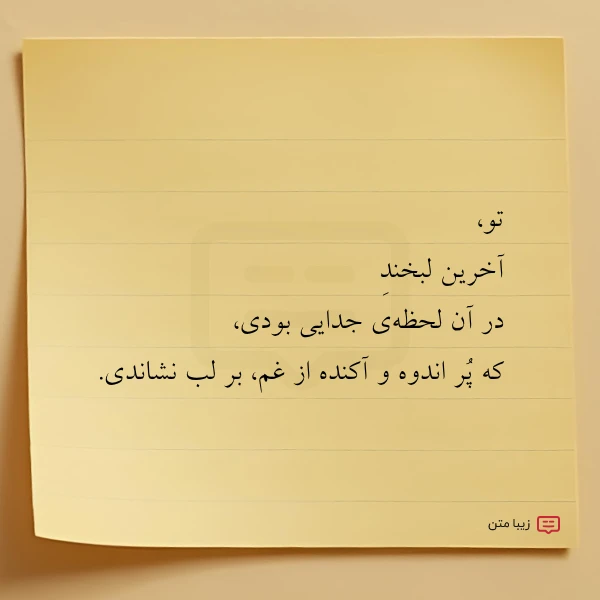 تو،
آخرین لبخندِ
در آن لحظه‌ی جدایی بودی،
که پُر اندوه و آکنده از غم، بر لب نشاندی.
زیبا متن